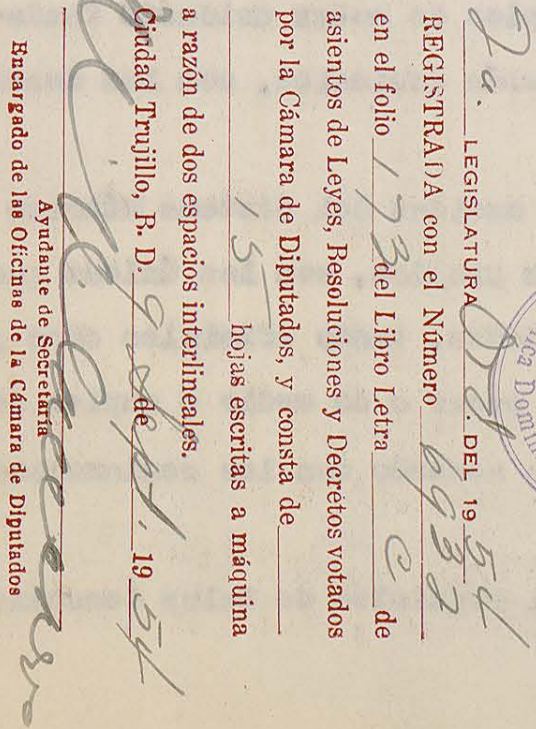 2a. LEGISLATURA Od. DEL 1954
REGISTRADA con el Número 6932
en el folio 113 del Libro Letra C de
asientos de Leyes, Resoluciones y Decretos votados
por la Cámara de Diputados, y consta de
5 hojas escritas a máquina
a razón de dos espacios interlineales.
Ciudad Trujillo, R. D. 9 de Sept. 1954
Ayudante de Secretaría
Encargado de las Oficinas de la Cámara de Diputados
ica Domin